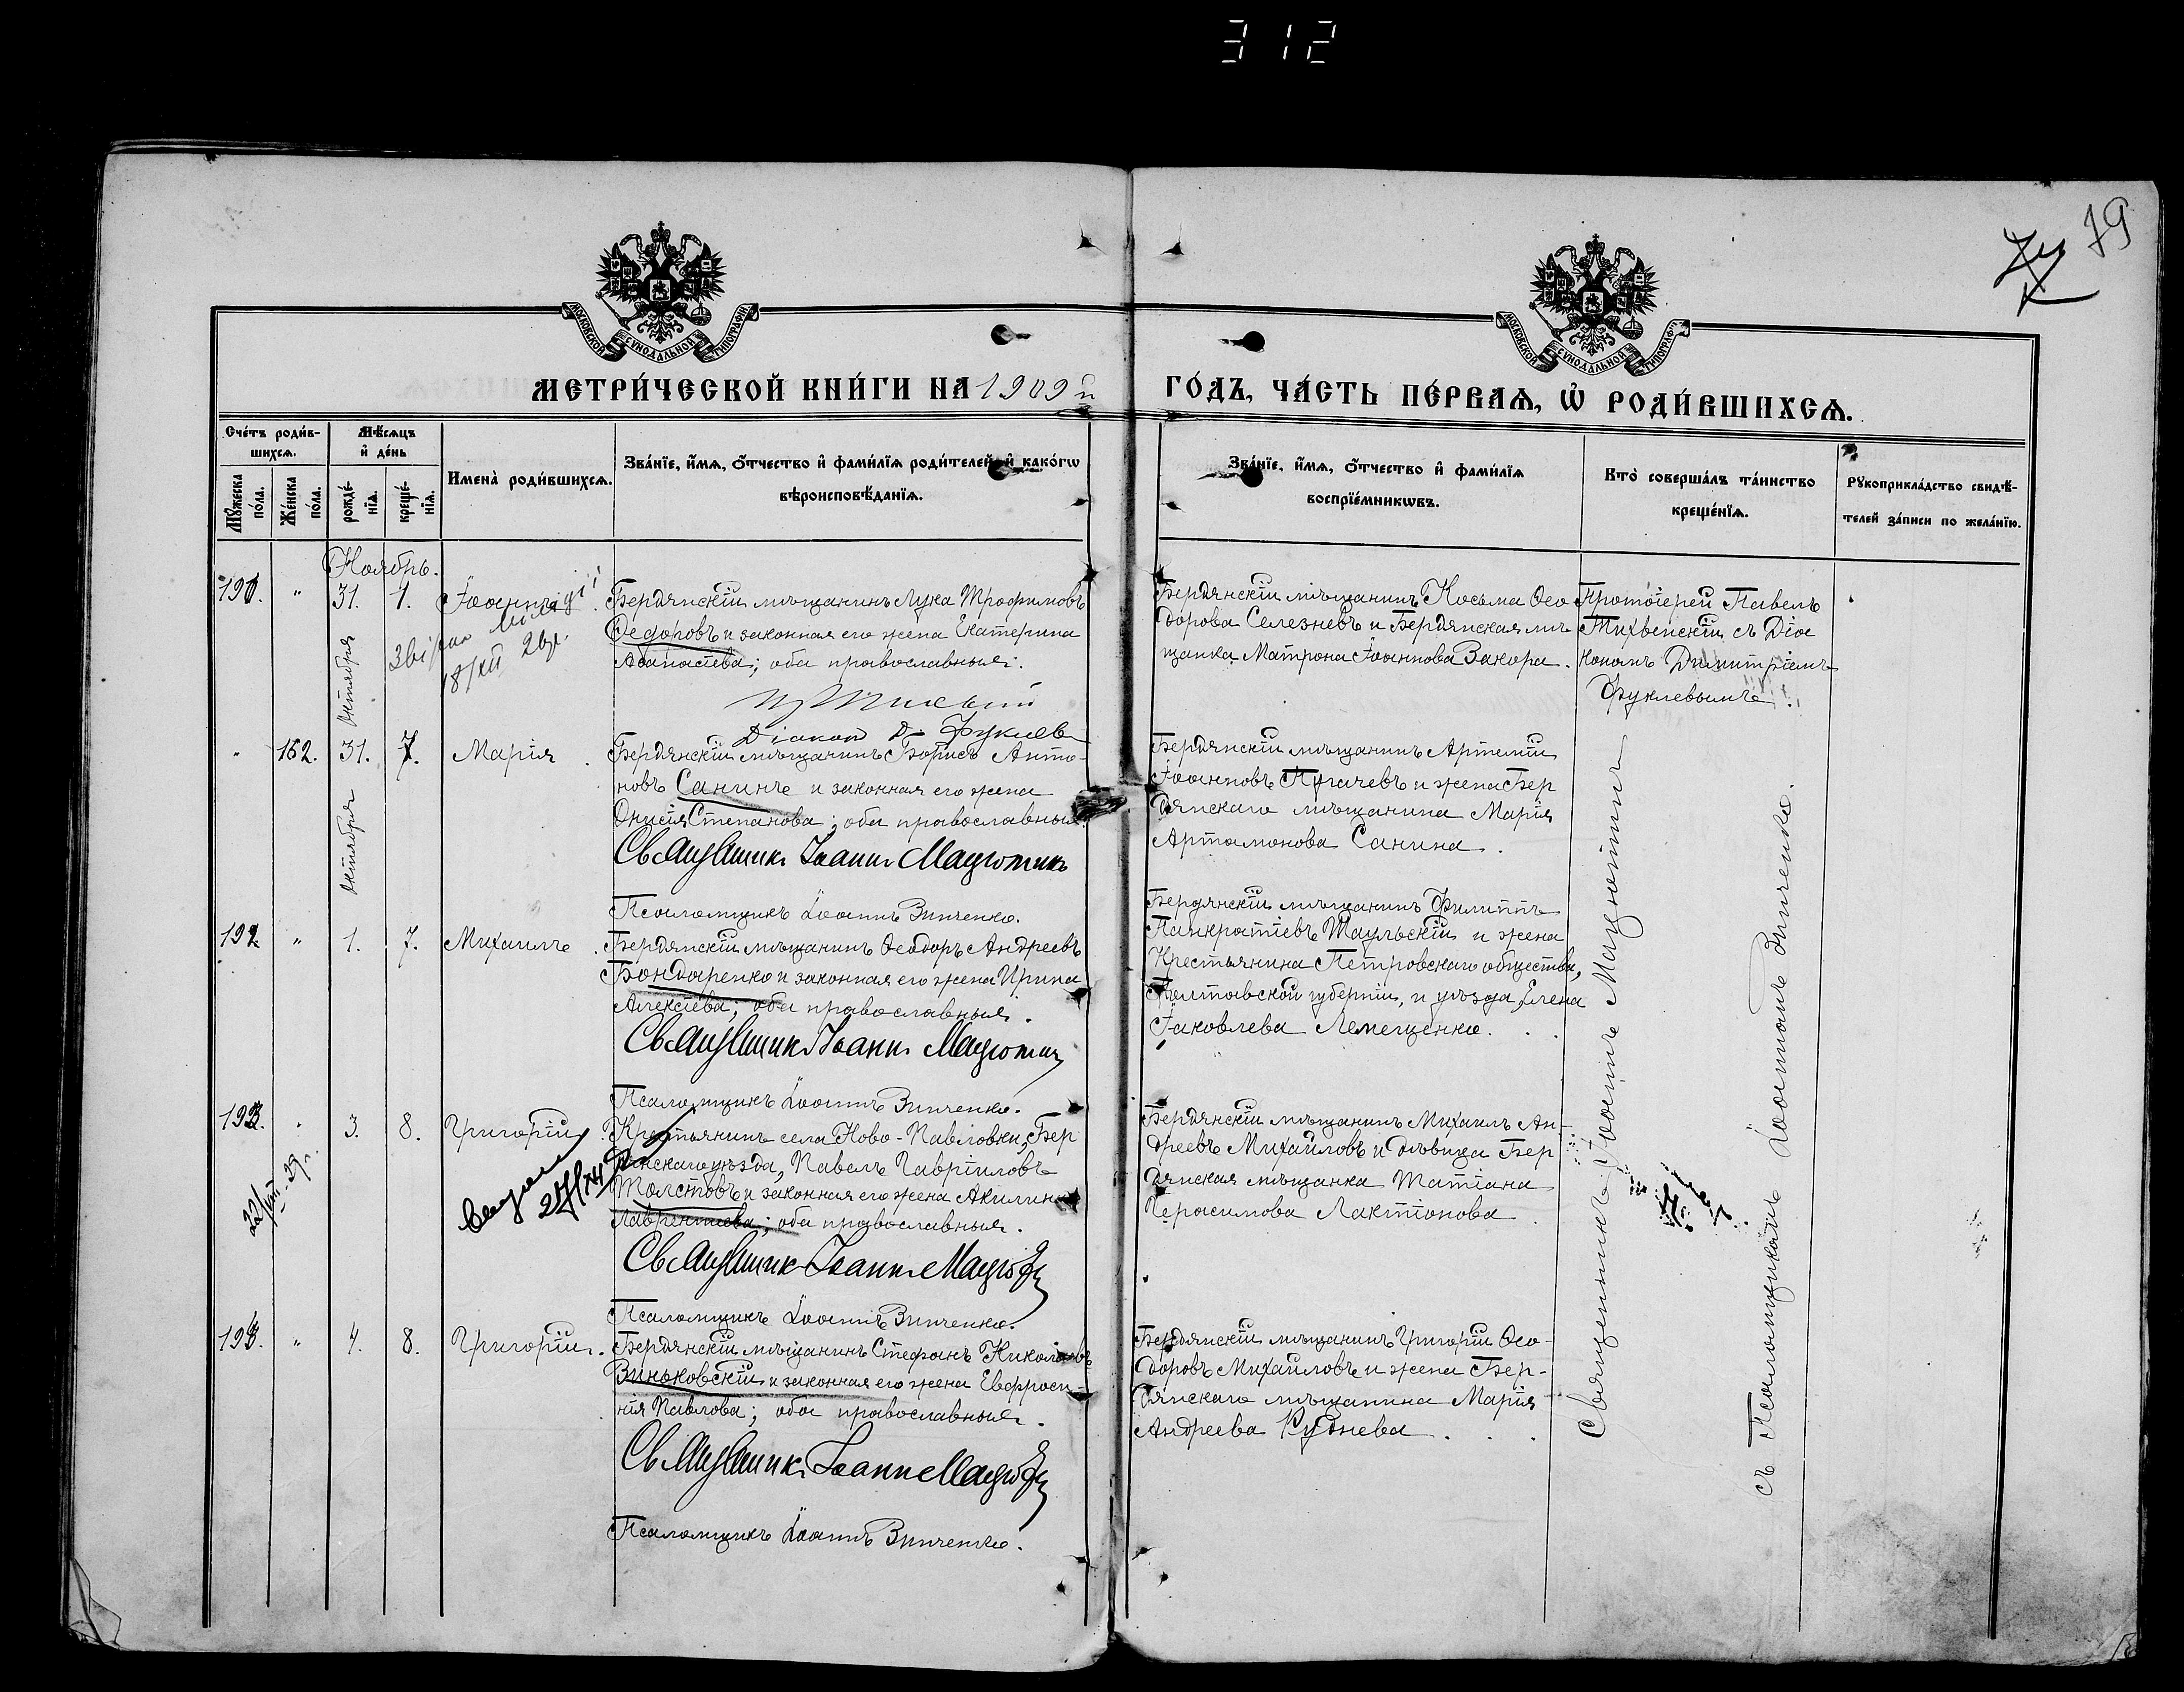 312
79
МОСКОВСКОЙ СѴНОДАЛЬНОЙ ТИПОГРАФІИ
МОСКОВСКОЙ СѴНОДАЛЬНОЙ ТИПОГРАФІИ
МЕТРИ́ЧЕСКОЙ КНИ́ГИ НА 1909 й
ГО́ДЪ, ЧА́СТЬ ПЕ́РВАѦ, Ѽ РОДИ́ВШИХСѦ.
Сче́тъ роди́в-
шихсѧ.
Мѣ́сѧцъ
и҆ де́нь
Мꙋ́жеска
по́ла.
Же́нска
по́ла.
рожде́-
нїѧ.
креще́-
нїѧ.
Имена̀ роди́вшихсѧ.
Зва́нїе, и҆́мѧ, ѻ҆́тчество и҆ фами́лїѧ роди́телей, и҆ како́гѡ
вѣроисповѣ́данїѧ.
Зва́нїе, и҆́мѧ, ѻ҆́тчество и҆ фами́лїѧ
воспрїе́мникѡвъ.
Кто̀ соверша́лъ та́инство
креще́нїѧ.
Рꙋкоприкла́дство свидѣ́-
телей за́писи по жела́нїю.
Ноябрь.
31.
октября
1.
Іоаннъ
18/XII
Бердянскій мѣщанинъ Лука Трофимовъ
Федоровъ и законная его жена Екатерина
Аѳанасіева; оба православные.
Діакон Д. Фуклев
Бердянскій мѣщанинъ Косьма Ѳео-
дорова Селезневъ и Бердянская мѣ
щанка Матрона Іоаннова Вакора.
Протоіерей Павелъ
Тихвенскій съ Діа
кономъ Димитріемъ
Фуклевымъ.
" 162. 31.
октября
7. Марія
Бердянскій мѣщанинъ Борисъ Анто-
новъ Санинъ и законная его жена
Онисія Степанова; оба православные.
Псаломщикъ Іоаннъ Зинченко.
Бердянскій мѣщанинъ Артемій
Іоанновъ Пугачевъ и жена Бер
дянскаго мѣщанина Марія
Артамонова Санина.
192. " 1. 7. Михаилъ
Бердянскій мѣщанинъ Ѳеодоръ Андреевъ
Бондаренко и законная его жена Ирина
Алексіева; оба православные.
Псаломщикъ Іоаннъ Зинченко.
Бердянскій мѣщанинъ Филиппъ
Панкратіевъ Таульскій и жена
Крестьянина Петровскаго общества,
Полтавской губерніи, и уѣзда, Елена
Іаковлева Лемещенко.
193. " 3. 8. Григорій
Крестьянинъ села Ново-Павловки, Бер
дянскаго уѣзда, Павелъ Гавріиловъ
Толстовъ и законная его жена Акилина
Лаврентіева; оба православные.
Псаломщикъ Іоаннъ Зинченко.
Бердянскій мѣщанинъ Михаилъ Ан-
дреевъ Михайловъ и дѣвица Бер
дянская мѣщанка Татіана
Герасимова Лактіонова
" 4. 8. Григорій.
Бердянскій мѣщанинъ Стефанъ Николаевъ
Зиньковскій и законная его жена Евфроси-
нія Павлова; оба православные.
Псаломщикъ Іоаннъ Зинченко.
Бердянскій мѣщанинъ Григорій Ѳео-
доровъ Михайловъ и жена Бер-
дянскаго мѣщанина Марія
Андреева Руднева
Священникъ Іоаннъ Мацютинъ
съ Псаломщикомъ Іоанномъ Зинченко.